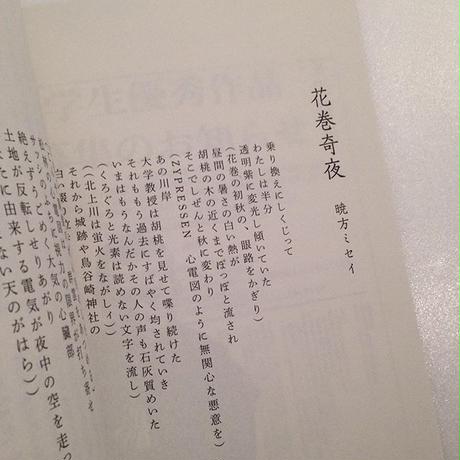 花巻奇夜
暁方ミセイ
乗り換えにしくじって
わたしは半分
透明紫に変光し傾いていた
(花巻の初秋の、眼路をかぎり)
昼間の暑さの白い熱が
胡桃の木の近くまでぽっぽと流され
そこでしぜんと秋に変わり
(ZYPRESSEN 心電図のように無関心な悪意を)
あの川岸
大学教授は胡桃を見せて喋り続けた
それももう過去にすばやく均されていき
いまはもうなんだかその人の声も石灰質めいた
(くろぐろと光素は読めない文字を流し)
((北上川は蛍火をながしィ))
それから城跡や鳥谷崎神社の
白い
絶えず
土地が反転する電気が夜中の空を走っ
に由来する
ない天のがはら))